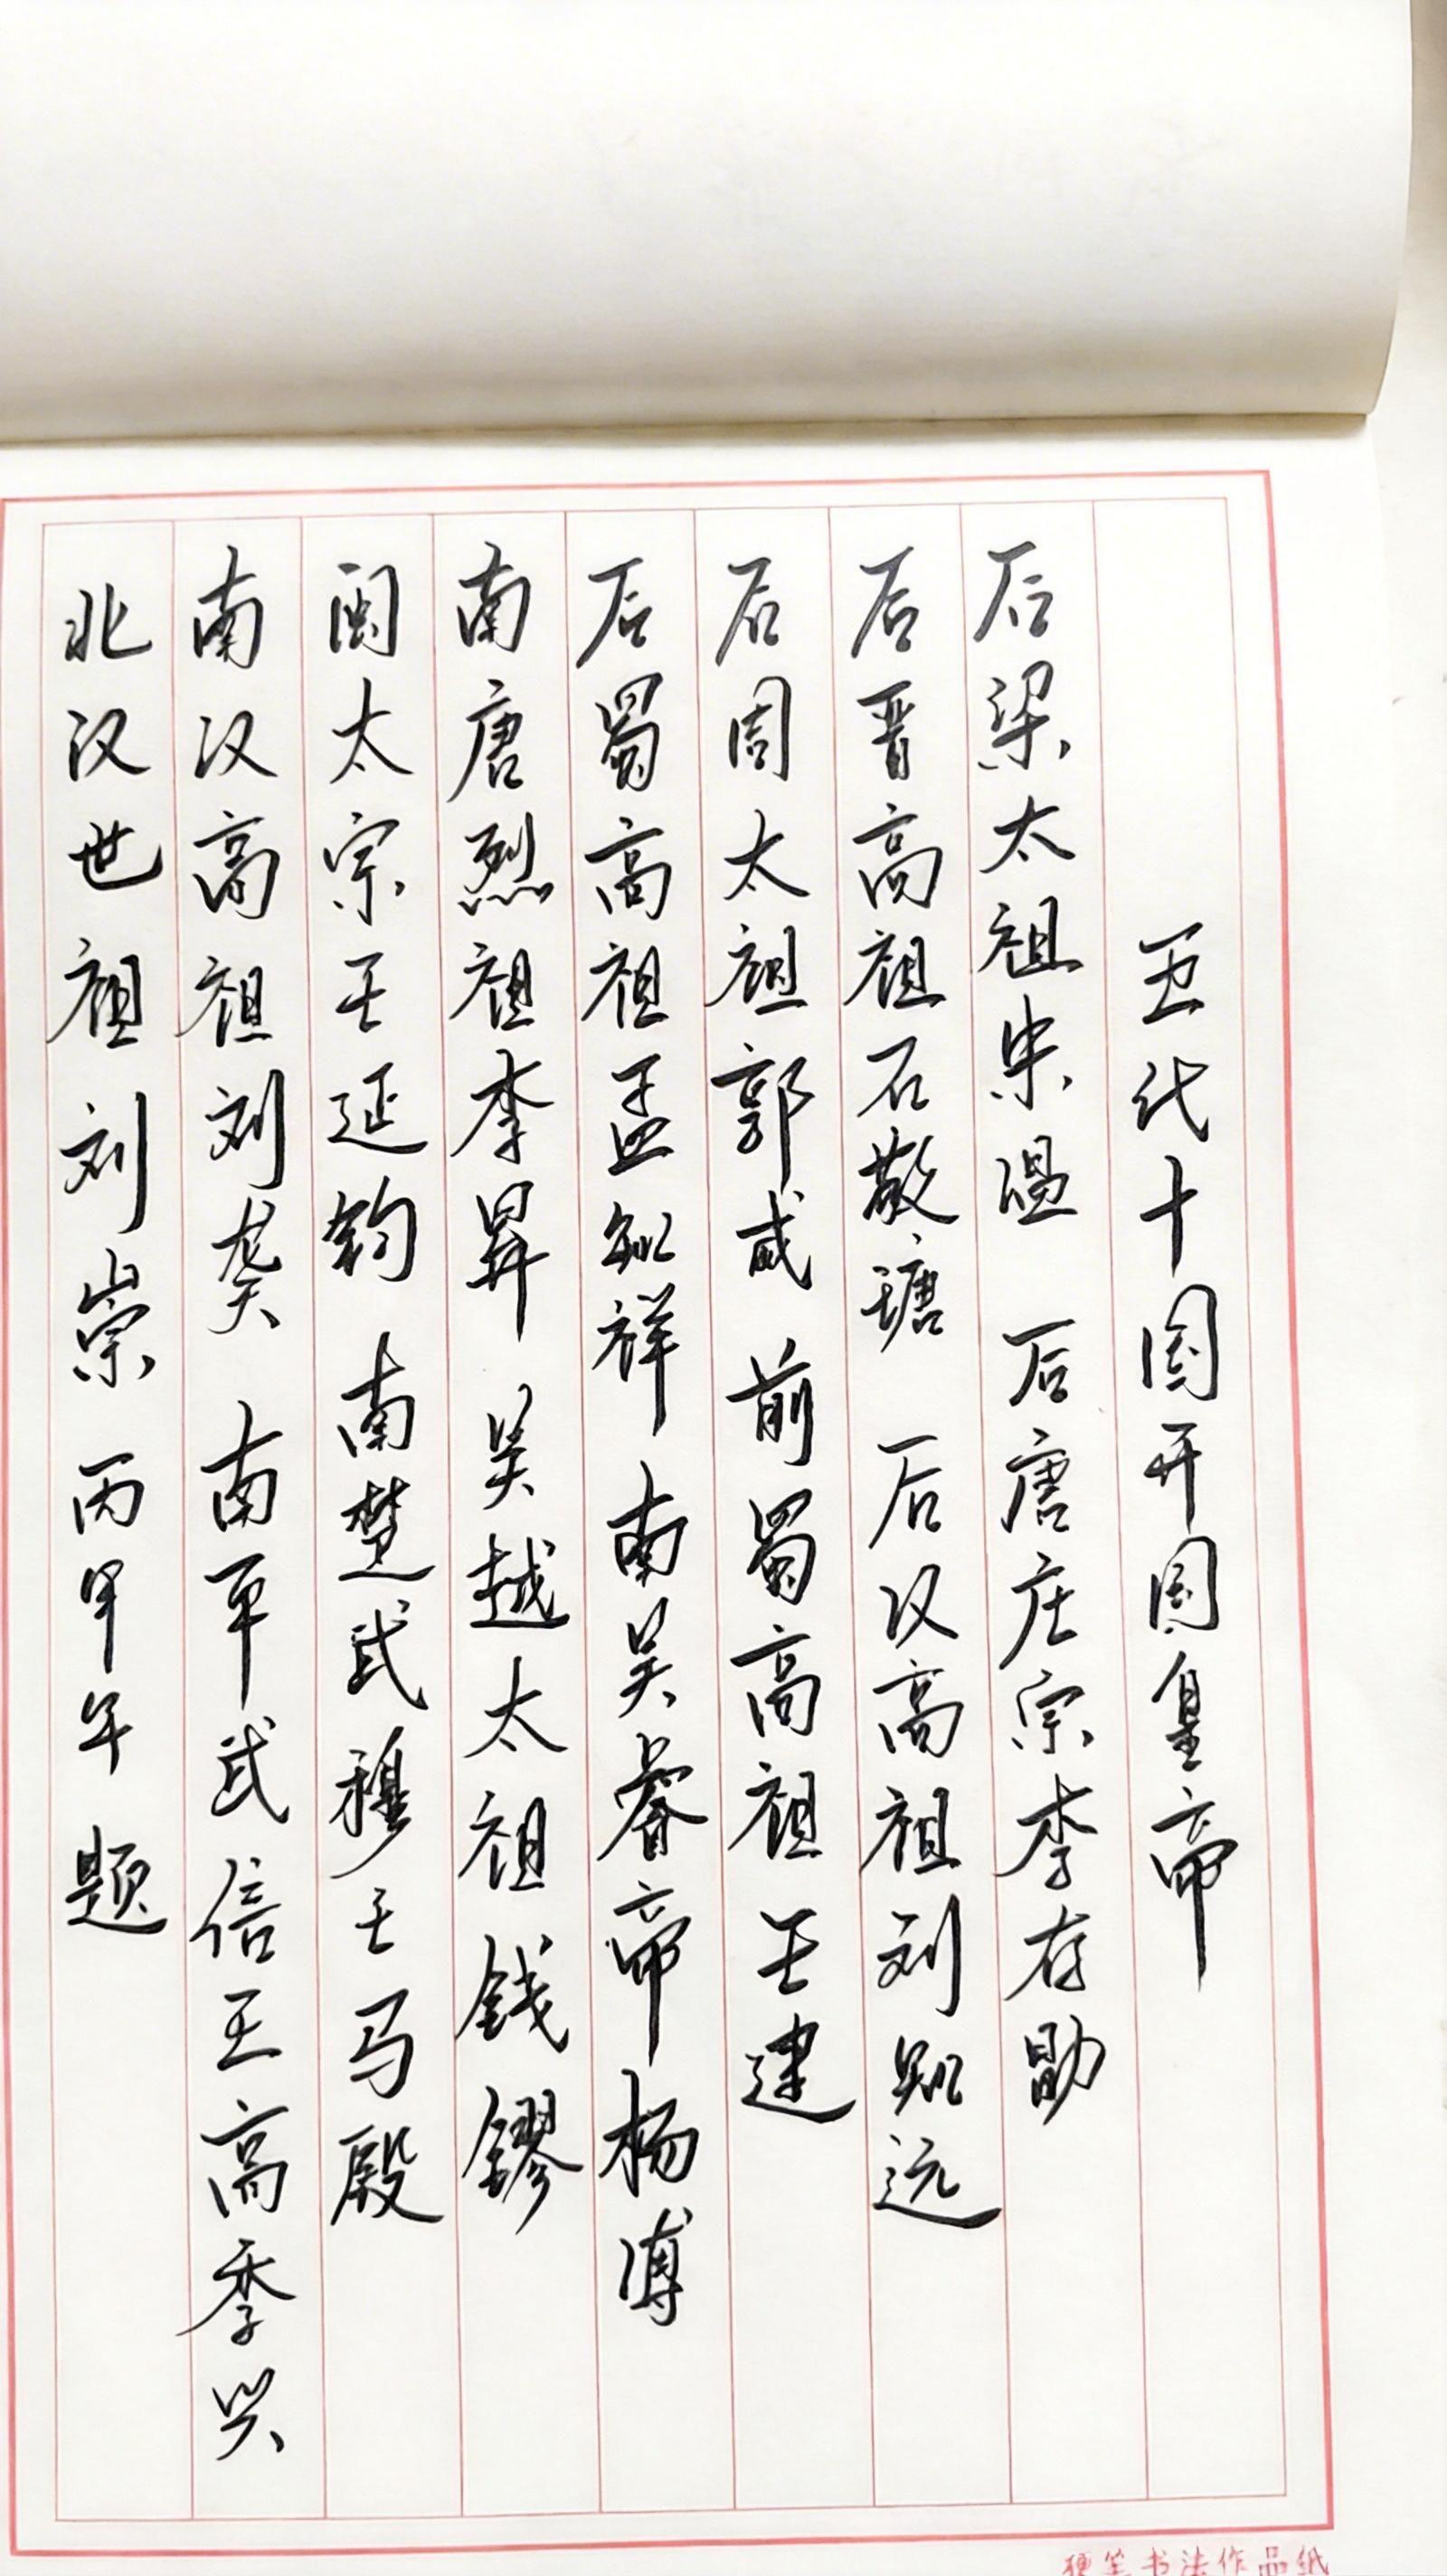 五代十国开国皇帝
后梁太祖朱温 后唐庄宗李存勖
后晋高祖石敬瑭 后汉高祖刘知远
后周太祖郭威 前蜀高祖王建
后蜀高祖孟知祥 南吴睿帝杨溥
南唐烈祖李昪 吴越太祖钱镠
闽太宗王延钧 南楚武穆王马殷
南汉高祖刘䶮 南平武信王高季兴
北汉世祖刘崇 丙申年 题
硬笔书法作品纸